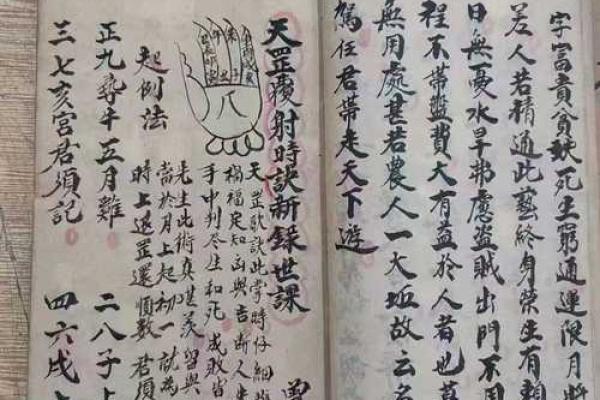 字富貴貧賤死生窮通運限月將
人若精通此藝終身榮生有賴
日無憂水旱弗慮盜賊出門不用
程不帶盤費大有益於人者也莫
無用處甚若農人一大坵故云名
駕任君帶走天下遊
天罡覆射時訣新錄世課
天罡歌訣此掌時仔細
禍福定知凶與吉斷人生
手中判尽生和死成敗皆
先生此術真堪羨留與
當於月上起初一就為
時上退罡還順數君須
八
起例法
正九尋午五月雞 二八子上
三七亥宮君須記 四六戌上